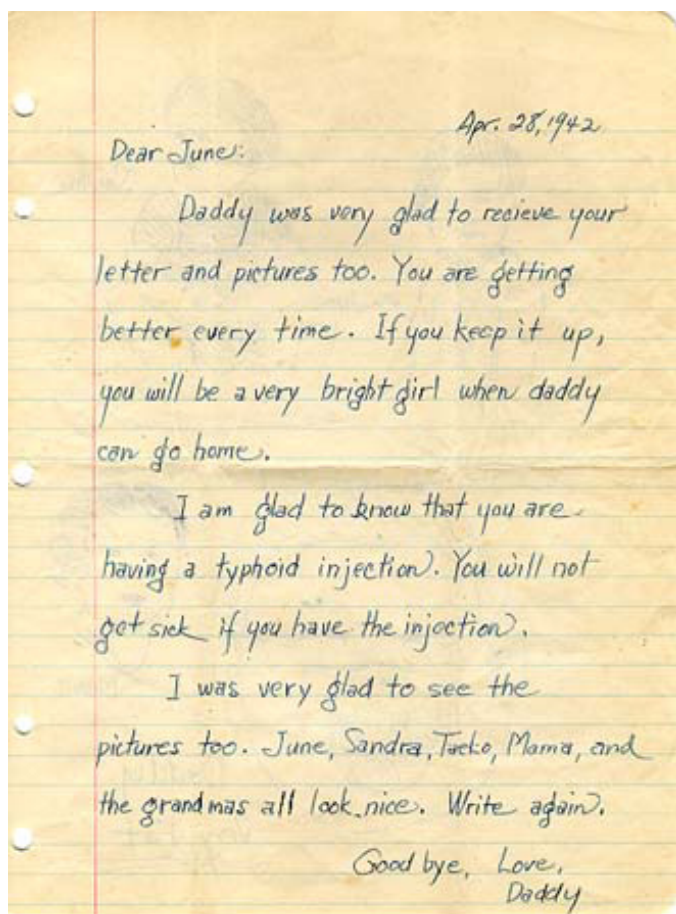 Apr. 28, 1942
Dear June:
Daddy was very glad to recieve your
letter and pictures too. You are getting
better every time. If you keep it up,
you will be a very bright girl when daddy
can go home.
I am glad to know that you are
having a typhoid injection. You will not
get sick if you have the injection.
I was very glad to see the
pictures too. June, Sandra, Taeko, Mama, and
the grandmas all look nice. Write again.
Good bye, Love,
Daddy